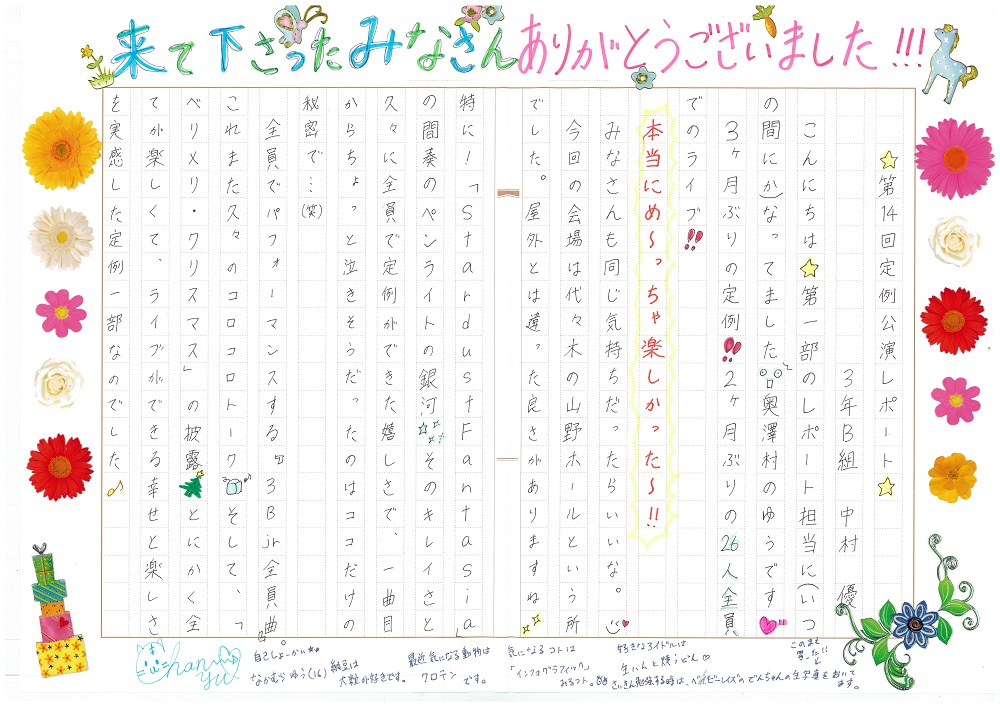 来て下さったみなさんありがとうございました!!!
☆第14回定例公演レポート☆
3年B組 中村 優
こんにちは☆第一部のレポート担当に(いつ
の間にか)なってました 奥澤村のゆうです
3ヶ月ぶりの定例!!2ヶ月ぶりの26人全員
でのライブ!!
本当にめ〜っちゃ楽しかった〜!!
みなさんも同じ気持ちだったらいいな。
今回の会場は代々木の山野ホールという所
でした。屋外とは違った良さがありますね
特に!「StardustFantasia」
の間奏のペンライトの銀河 そのキレイさと
久々に全員で定例ができた嬉しさで、一曲目
からちょっと泣きそうだったのはココだけの
秘密で…(笑)
全員でパフォーマンスする『3Bjr全員曲』。
これまた久々のコロコロトーク そして、「
ベリメリ・クリスマス」の披露 とにかく全
てが楽しくて、ライブができる幸せと楽しさ
を実感した定例一部なのでした♪
自己しょーかい
なかむらゆう(16)納豆は
大粒が好きです。
最近気になる動物は
クロテン です。
気になるコトは
「インフォグラフィック」
みるコト。
好きなアイドルは
生ハムと焼うどん♡
さいきん勉強する時は、ベイビーレイズのでんちゃんの生写真をおいて
ます。
han
yu